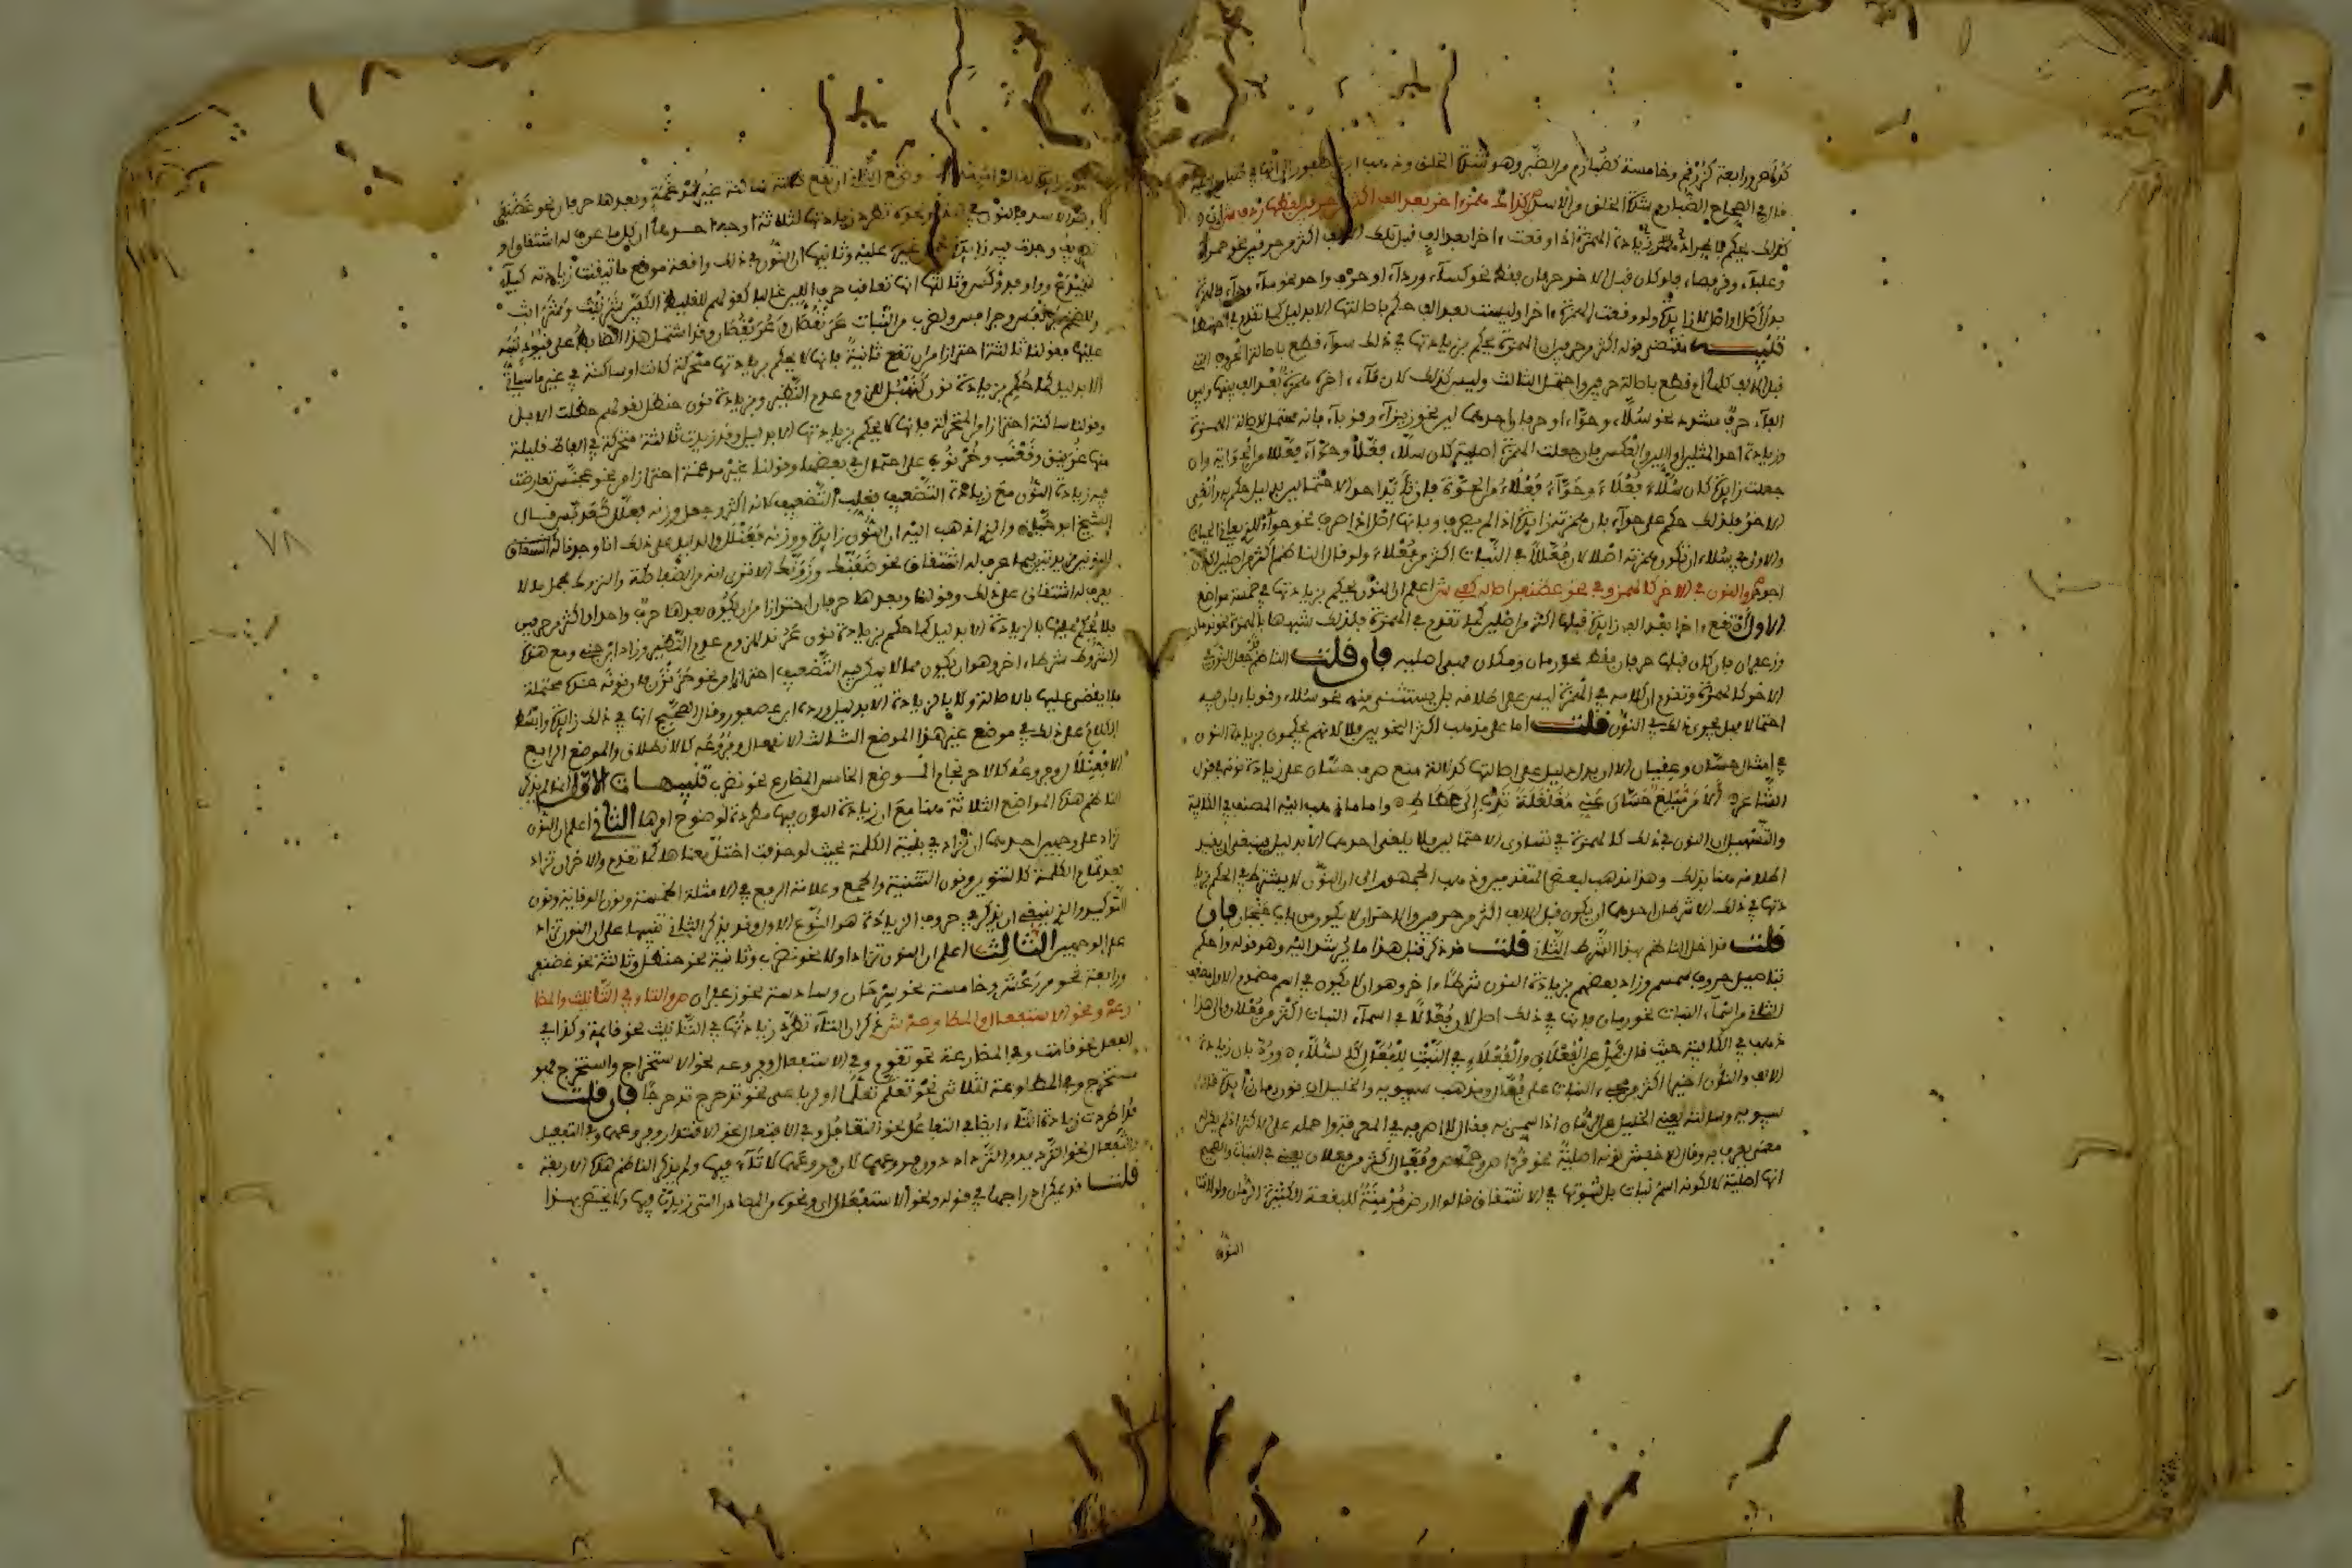 كدلامص ورابعة كزرقم وخامسة كضبارم من الضبر وهو شدة الخلق وذهب ابن عصفور الى انها في ضبارم
قال في الصحاح الضبارم شديد الخلق من الاسد كذاك همز اخر بعد الف اكثر من حرفين لفظها ردف ش
كذلك يحكم باطراد زيادة الهمزة اذا وقعت اخرا بعد الف قبل تلك الالف اكثر من حرفين نحو حمراء
وعلباء وقرفصاء فلو كان قبل الاخر حرفان فقط نحو كساء ورداء او حرف واحد نحو ماء وداء فالهمزة
بدل من اصل او اصل لا زايدة ولو وقعت الهمزة اخرا وليست بعد الف حكم باصالتها الا بدليل كما تقدم
تنبيه مقتضى قوله اكثر من حرفين ان الهمزة يحكم بزيادتها في ذلك سواء قطع باصالة الحروف التي
قبل الالف كلها ام قطع باصالة حرفين واحتمل الثالث وليس كذلك لان ما اخره همزة بعد الف بينها وبين
الفاء حرف مشدد نحو سلاء وحواء او حرفان احدهما لين نحو زيزاء وقوباء فانه محتمل لاصالة الهمزة
وزيادة احد المثلين او اللين والعكس فان جعلت الهمزة اصلية كان سلاء فعالا وحواء فعالا من الحواية وان
جعلت زايدة كان سلاء فعلاء وحواء فعلاء من الحوة فان تأيد احد الاحتمالين بدليل حكم به والغي
الاخر فلذلك حكم على حواء بان همزته زايدة اذا لم يصرف وبانها اصل اذا صرف نحو حواء للذي يعاني الحيات
والاولى في سلاء ان تكون همزته اصلا لان فعالا في النبات اكثر من فعلاء ولو قال الناظم اكثر من اصلين لكان
اجود ص والنون في الاخر كالهمز وفي نحو غضنفر اصالة كفي ش اعلم ان النون يحكم بزيادتها في خمسة مواضع
الاول ان تقع اخرا بعد الف زايدة قبلها اكثر من اصلين كما تقدم في الهمزة فلذلك شبهها بالهمزة نحو ندمان
وزعفران فان كان قبلها حرفان فقط نحو رمان ومكان فهي اصلية فان قلت الناظم قد جعل النون في
الاخر كالهمزة وتقدم ان كلامه في الهمزة ليس على اطلاقه بل يستثنى منه نحو سلاء وقوباء فان فيه
احتمالا فهل يجري ذلك في النون قلت اما على مذهب اكثر النحويين فلا لانهم يحكمون بزيادة النون
في امثال حسان وعقيان الا ان يدل دليل على اصالتها كدلالة منع صرف حسان على زيادة نونه في قول
الشاعر الا من مبلغ حسان عني مغلغلة تدب الى عكاظ واما ما ذهب اليه المصنف في الكافية
والتسهيل ان النون في ذلك كالهمزة في تساوي الاحتمالين فلا يلغى احدهما الا بدليل فينبغي ان يقيد
اطلاقه هنا بذلك وهذا مذهب لبعض المتقدمين وذهب الجمهور الى ان النون لا يشترط في الحكم بزيا
دتها في ذلك الا شرطان احدهما ان يكون قبل الالف اكثر من حرفين والاخر ان لا يكون من باب جنجان فان
قلت قد اخل الناظم بهذا الشرط الثاني قلت قد ذكر قبل هذا ما يرشد اليه وهو قوله واحكم
بتاصيل حروف سمسم وزاد بعضهم بزيادة النون شرطا اخر وهو ان لا يكون في اسم مضموم الاول مضعف
الثاني من اسماء النبات نحو رمان فانها في ذلك اصل لان فعالا في اسماء النبات اكثر من فعلان والى هذا
ذهب في الكافية حيث قال فمل عن الفعلان والفعلاء في النبت للفعال كالسلاء ورد بان زيادة
الالف والنون اخرا اكثر من مجيء النبات على فعال ومذهب سيبويه والخليل ان نون رمان زايدة قال
سيبويه وسالته يعني الخليل عن الرمان اذا سمي به فقال لا اصرفه في المعرفة واحمله على الاكثر اذا لم يكن له
معنى يعرف به وقال الاخفش نونه اصلية نحو قراص وحماض وفعال اكثر من فعلان يعني في النبات والصحيح
انها اصلية لا لكونه اسم نبات بل لثبوتها في الاشتقاق قالوا ارض مرمنة للبقعة الكثيرة الرمان ولولا
النون
النون وضع الثاني ان تقع ثالثة ساكنة غير مدغمة وبعدها حرفان نحو غضنفر
٧٨
وزيف وحذف غير عليه وثانيها ان النون في ذلك واقعة موقع ما تيقنت زيادته كياء
سميدع وواو فدوكس وثالثها انها تعاقب حرف اللين غالبا كقولهم للغليظ الكفين شرنبث وشرابث
وللضخم جرنفس وجرافس ولضرب من النبات عرنقصان وعريقصان وقد اشتمل هذا الضابط على قيود نبه
عليها بقولنا ثالثة احترازا من ان تقع ثانية فانها لا يحكم بزيادتها متحركة كانت او ساكنة في غير ما سياتي
الا بدليل كما حكم بزيادة نون كنهبل للزوم عدم النظير وبزيادة نون حنظل لقولهم حظلت الابل
وقولنا ساكنة احترازا من المتحركة فانها لا يحكم بزيادتها الا بدليل وقد زيدت ثالثة متحركة في الفاظ قليلة
منها غرنيق وقعنب وخرنوب على احتمال في بعضها وقولنا غير مدغمة احترازا من نحو عجنس تعارضت
فيه زيادة النون مع زيادة التضعيف فغلب التضعيف لانه اكثر وجعل وزنه فعلل كعدبس قال
الشيخ ابو حيان والذي اذهب اليه ان النون زايدة ووزنه فعنلل والدليل على ذلك انا وجدنا
النونين مزيدتين فيما عرف له اشتقاق نحو ضفنط وزونك الا ترى انه من الضفاطة والزوك فيحمل ما لا
يعرف له اشتقاق على ذلك وقولنا وبعدها حرفان احترازا من ان يكون بعدها حرف واحد او اكثر من حرفين
فلا يحكم عليها بالزيادة الا بدليل كما حكم بزيادة نون عرند للزوم عدم النظير وزاد ابن جني ومع هذه
الشروط شرطا اخر وهو ان يكون مما لا يمكن فيه التضعيف احترازا من نحو خزنزن فان نونه عنده محتملة
فلا يقضى عليها بالاصالة ولا بالزيادة الا بدليل ورده ابن عصفور وقال الصحيح انها في ذلك زايدة وابسط
الكلام على ذلك في موضع غير هذا الموضع الثالث الانفعال وفروعه كالانطلاق والموضع الرابع
الافعنلال وفروعه كالاحرنجام الموضع الخامس المضارع نحو نضرب تنبيهات الاول انما لم يذكر
الناظم هذه المواضع الثلاثة هنا مع ان زيادة النون فيها مطردة لوضوح امرها الثاني اعلم ان النون
تزاد على وجهين احدهما ان تزاد في بنية الكلمة بحيث لو حذفت اختل معناها كما تقدم والاخر ان تزاد
بعد تمام الكلمة كالتنوين ونون التثنية والجمع وعلامة الرفع في الامثلة الخمسة ونون الوقاية ونون
التوكيد والذي ينبغي ان يذكر في حروف الزيادة هو النوع الاول وقد يذكر الثاني تنبيها على ان النون تزاد
على الوجهين الثالث اعلم ان النون تزاد اولا نحو نضرب وثانية نحو حنظل وثالثة نحو غضنفر
ورابعة نحو مرعش وخامسة نحو سرحان وسادسة نحو زعفران ص والتاء في التانيث والمضا
رعة ونحو الاستفعال والمطاوعة ش ذكر ان التاء تطرد زيادتها في التانيث نحو قائمة وكذا في
الفعل نحو قامت وفي المضارعة نحو تقوم وفي الاستفعال وفروعه نحو الاستخراج واستخرج فهو
مستخرج وفي المطاوعة لثلاثي نحو تعلم تعلما او رباعي نحو تدحرج تدحرجا فان قلت
قد اطردت زيادة التاء ايضا في التفاعل نحو التفاعل وفي الافتعال نحو الاقتدار وفروعهما وفي التفعيل
والتفعال نحو الترديد والترداد دون فروعهما لان فروعهما لا تاء فيها ولم يذكر الناظم هذه الاربعة
قلت قد يمكن ادراجها في قوله ونحو الاستفعال اي ونحوه من المصادر التي زيدت فيها ولا يختص بهذا